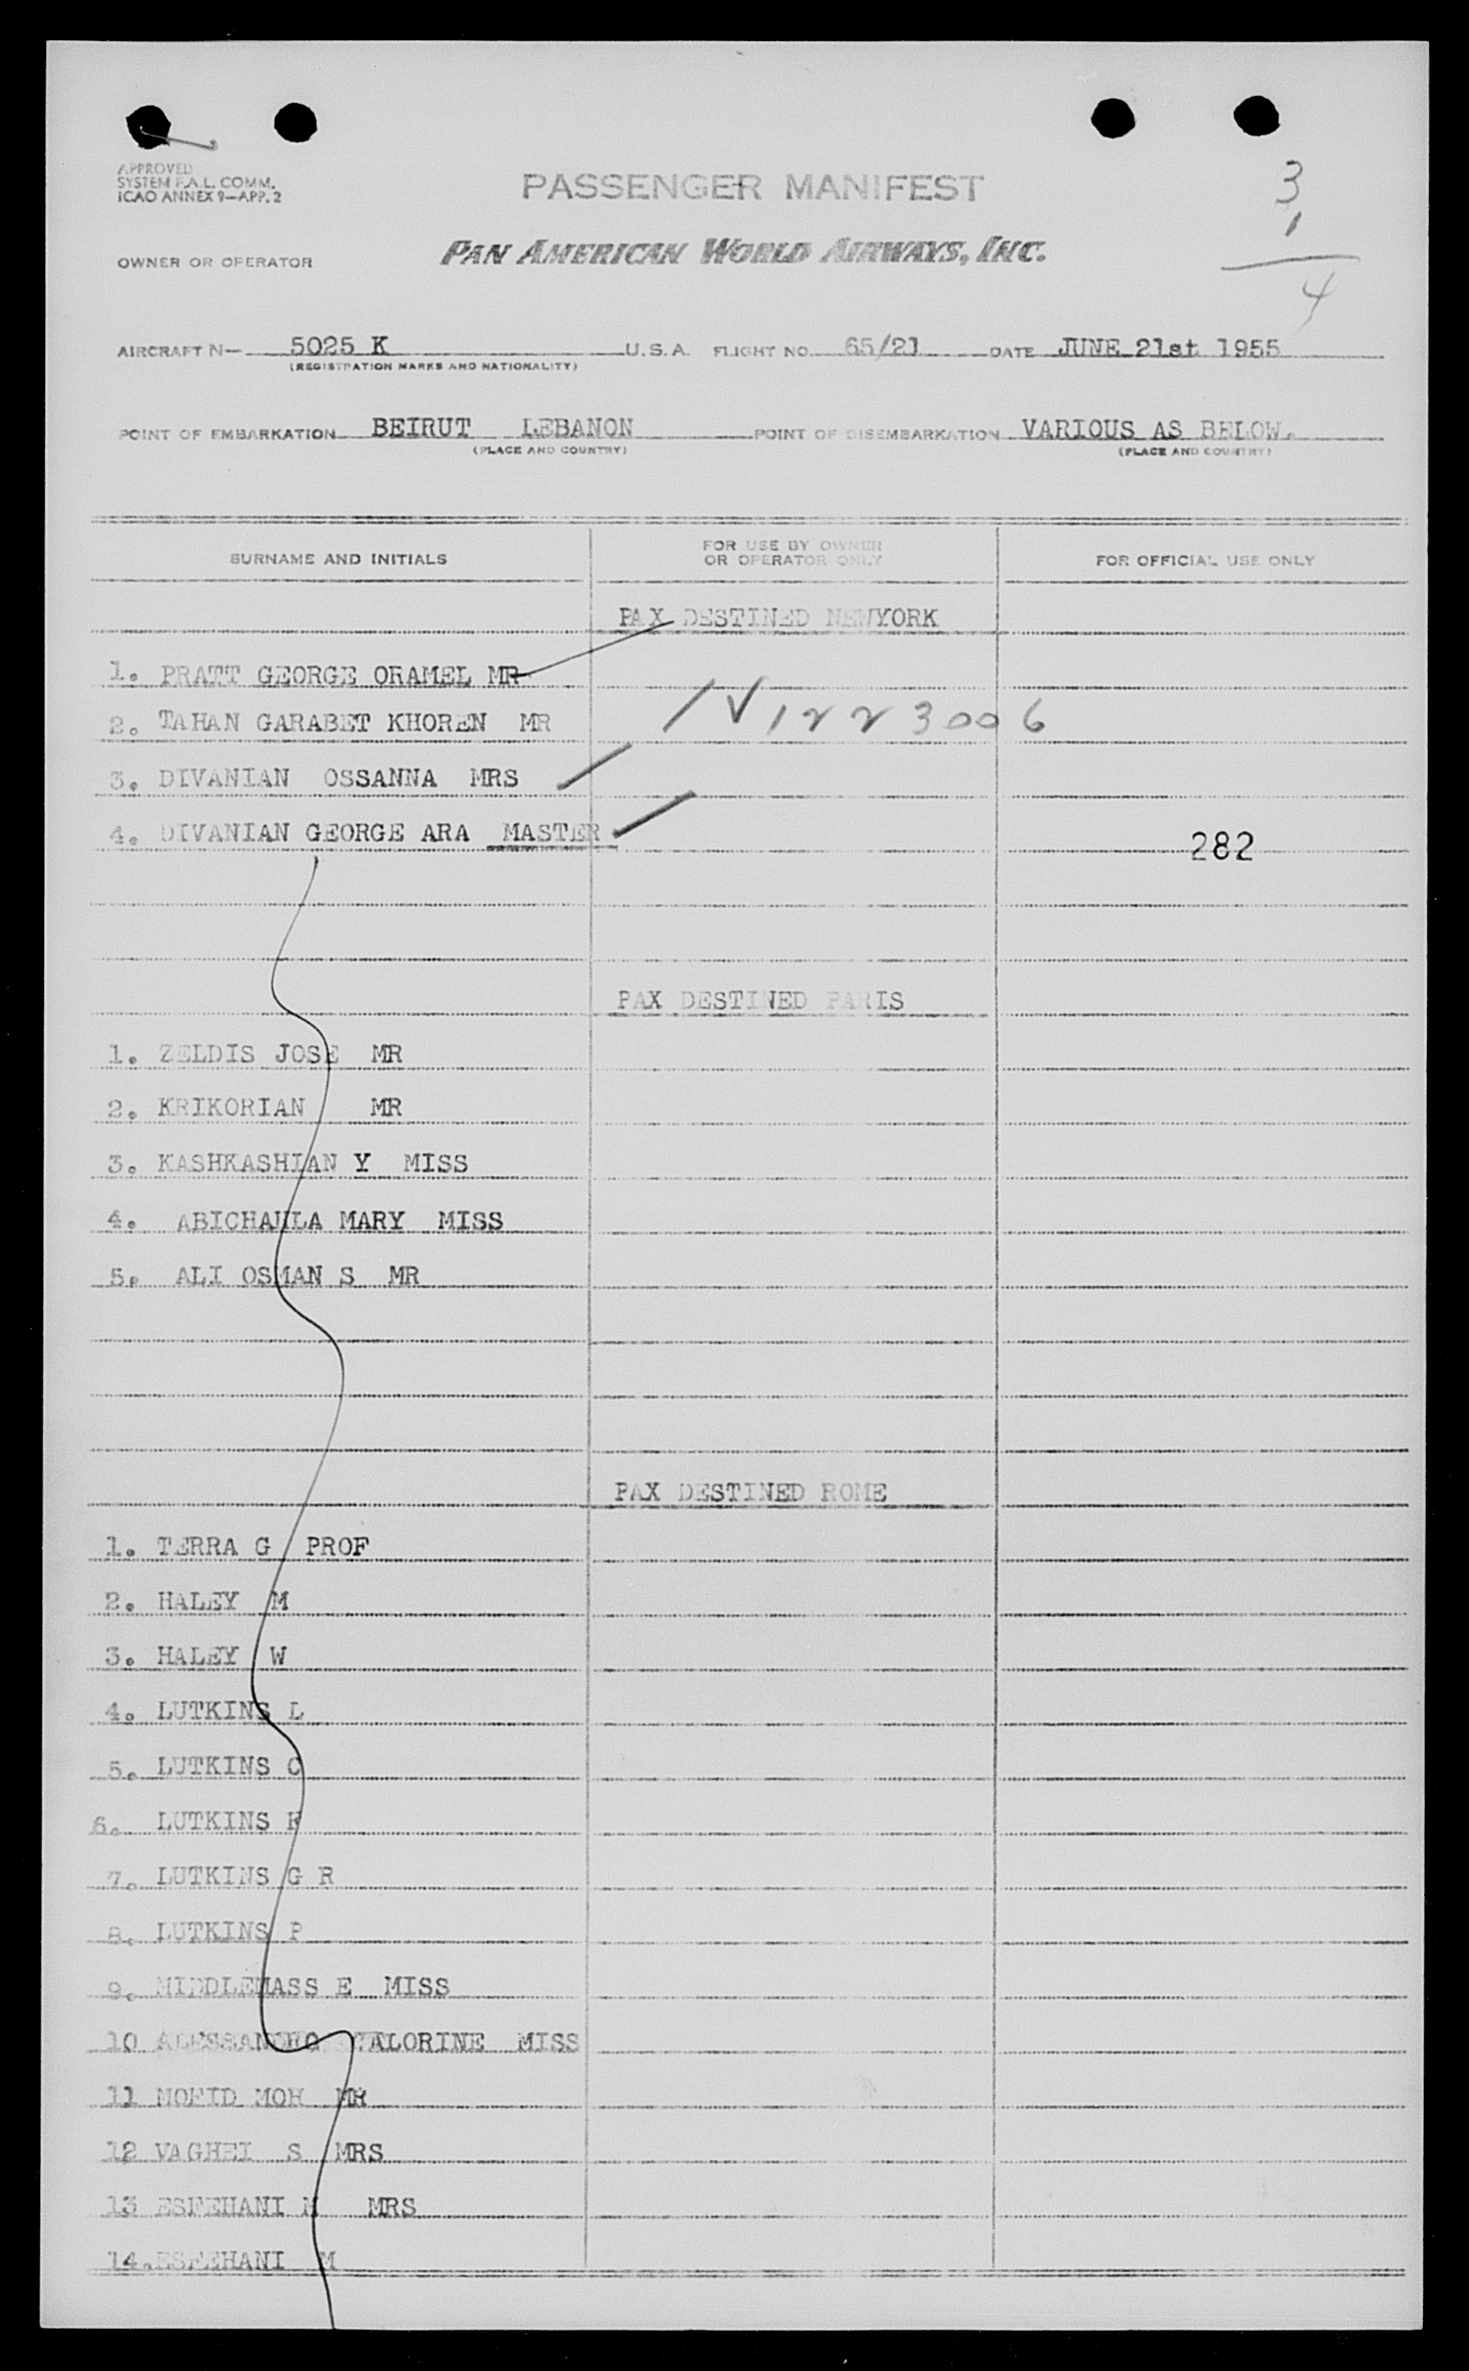 APPROVED
SYSTEM F.A.L. COMM.
ICAO ANNEX 9—APP. 2
PASSENGER MANIFEST
3
1
4
OWNER OR OPERATOR
PAN AMERICAN WORLD AIRWAYS, INC.
AIRCRAFT N— 5025 K U.S.A. FLIGHT NO. 65/21 DATE JUNE 21st 1955
(REGISTRATION MARKS AND NATIONALITY)
POINT OF EMBARKATION BEIRUT LEBANON POINT OF DISEMBARKATION VARIOUS AS BELOW.
(PLACE AND COUNTRY) (PLACE AND COUNTRY)
SURNAME AND INITIALS FOR USE BY OWNER OR OPERATOR ONLY FOR OFFICIAL USE ONLY
PAX DESTINED NEWYORK
1. PRATT GEORGE ORAMEL MR
2. TAHAN GARABET KHOREN MR V 1223006
3. DIVANIAN OSSANNA MRS
4. DIVANIAN GEORGE ARA MASTER 282
PAX DESTINED PARIS
1. ZELDIS JOSE MR
2. KRIKORIAN MR
3. KASHKASHIAN Y MISS
4. ABICHAHLA MARY MISS
5. ALI OSMAN S MR
PAX DESTINED ROME
1. TERRA G PROF
2. HALEY M
3. HALEY W
4. LUTKINS L
5. LUTKINS C
6. LUTKINS
7. LUTKINS G R
8. LUTKINS P
9. MIDDLEMASS E MISS
10 ALESSANDRO MISS
11 MOFID MOH MR
12 VAGHEI S MRS
13 ESFEHANI M MRS
14. ESFEHANI M